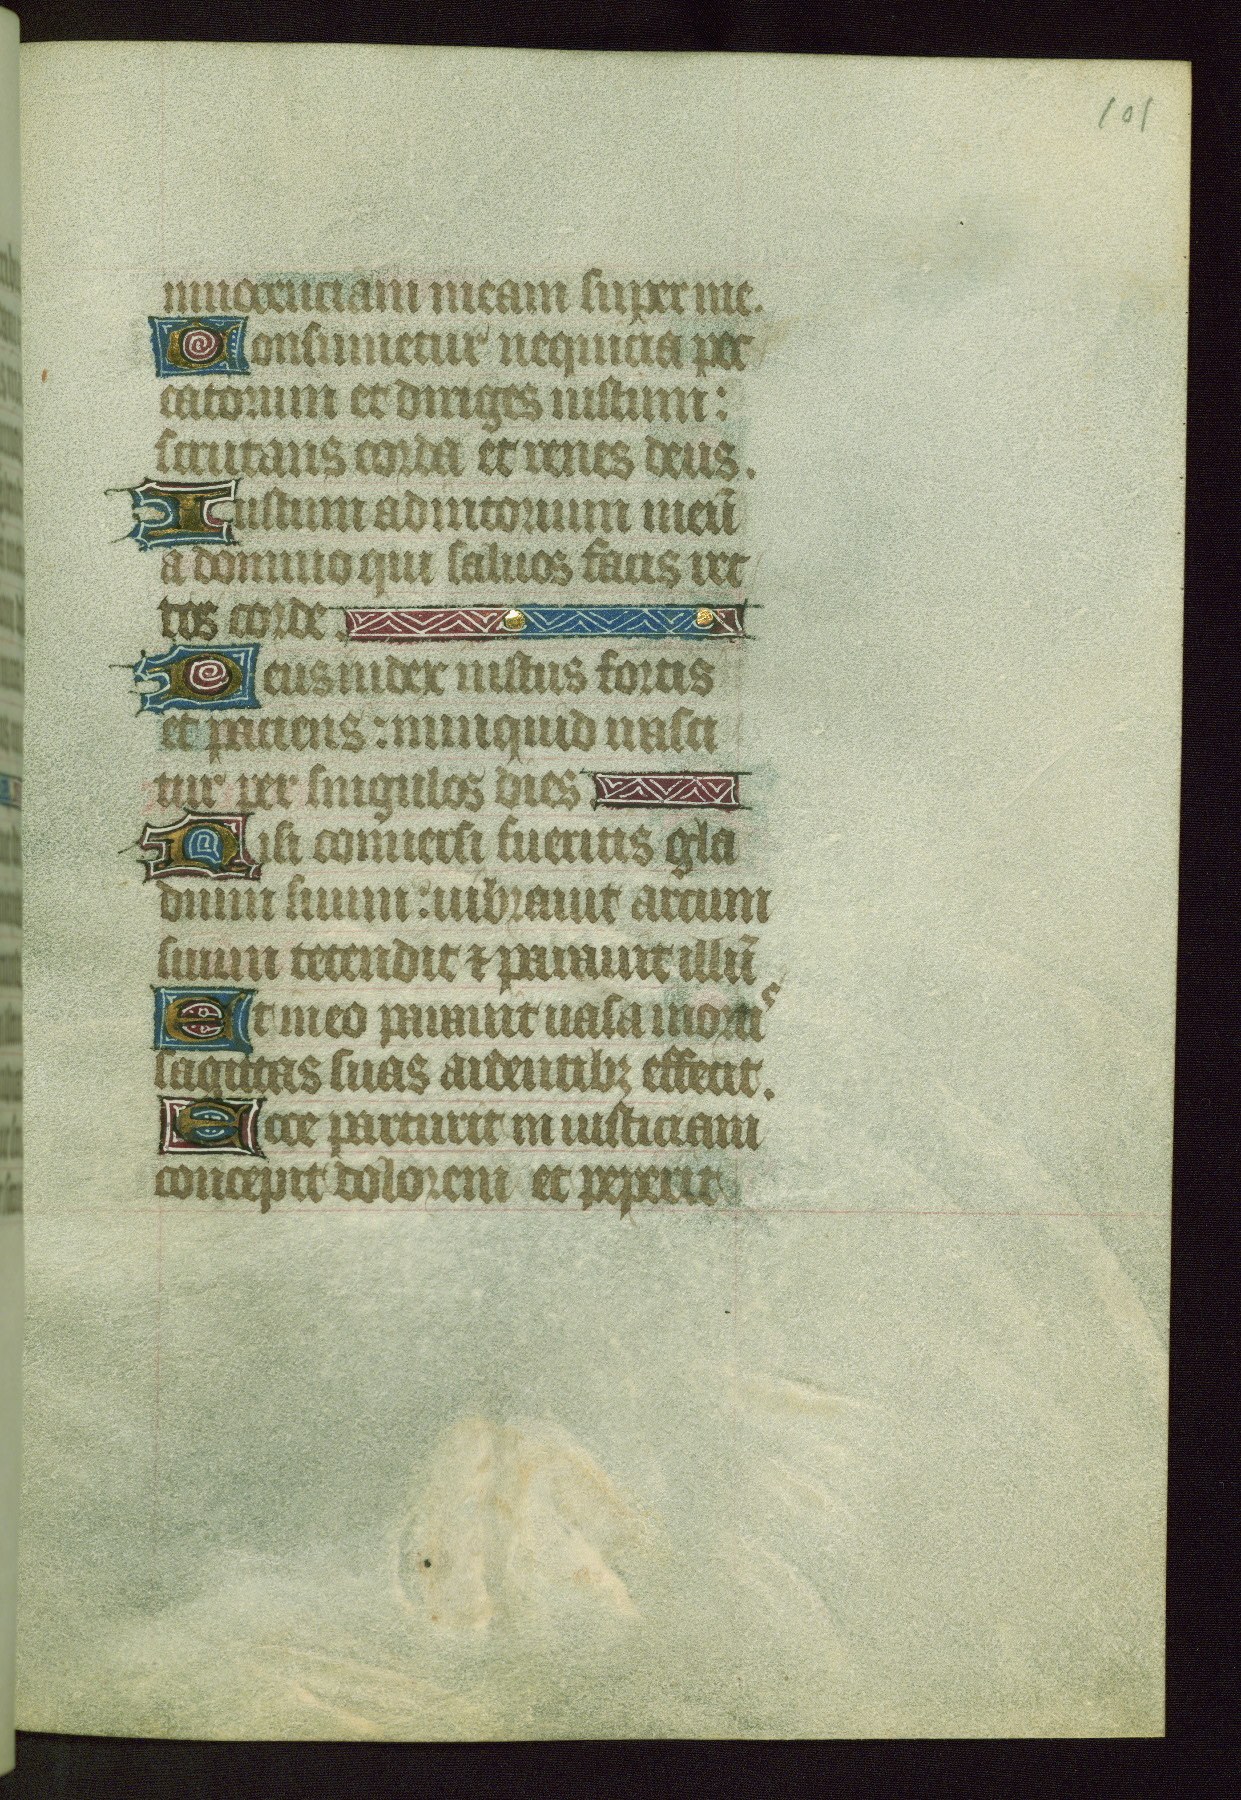 101
innocenciam meam super me.
Consumetur nequicia pec
catorum et diriges iustum:
scrutans corda et renes deus.
Iustum adiutorium meū
a domino qui saluos facis rec
tos corde
Deus iudex iustus fortis
et paciens: nunquid irasci
tur per singulos dies
Nisi conuersi fueritis gla
dium suum: uibrauit arcum
suum tetendit ⁊ parauit illū
Et in eo parauit uasa mortis
sagittas suas ardentibꝫ effecit.
Ecce parturit in iusticiam
concepit dolorem et peperit